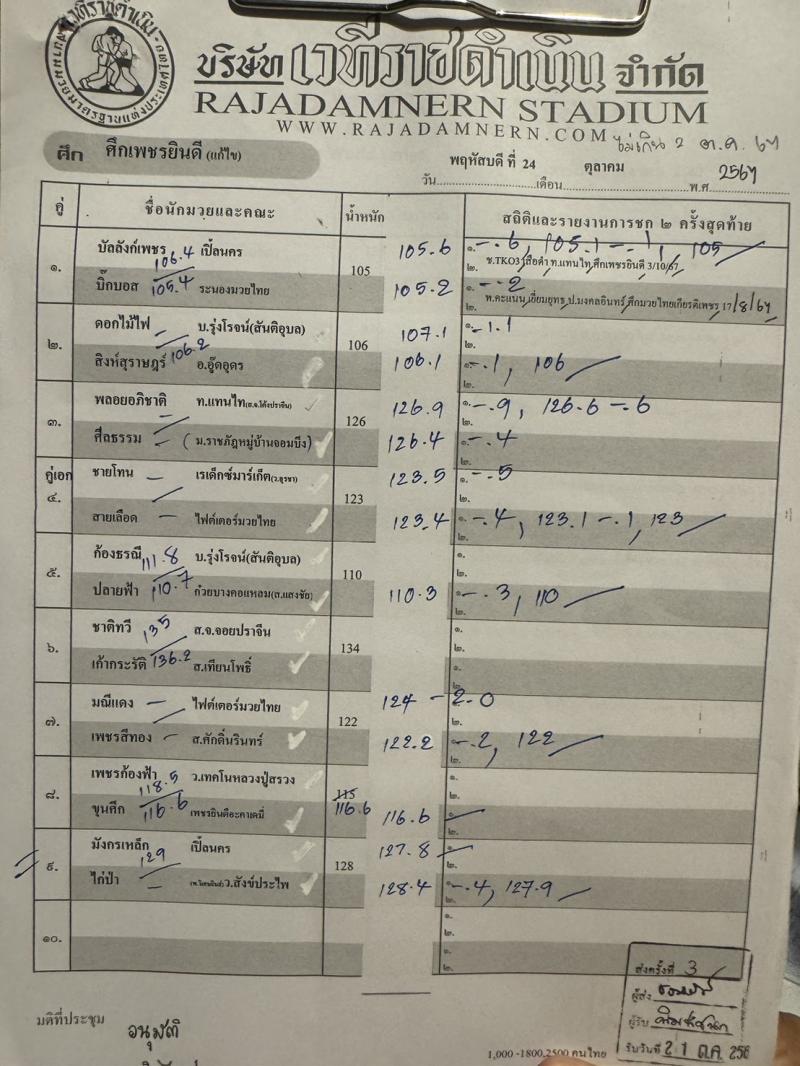 บริษัท เวทีราชดำเนิน จำกัด
RAJADAMNERN STADIUM
WWW.RAJADAMNERN.COM
ไม่เกิน 2 ต.ค. 67
ศึก ศึกเพชรยินดี (แก้ไข)
วัน พฤหัสบดี ที่ 24 เดือน ตุลาคม พ.ศ. 2567
คู่ ชื่อนักมวยและคณะ น้ำหนัก สถิติและรายงานการชก ๒ ครั้งสุดท้าย
๑. บัลลังก์เพชร 106.4 เปี้ลนคร 105 105.6 ๑. -.6, 105.1 -.1, 105
๒. ช.TKO3 เสือดำ ท.แทนไท ศึกเพชรยินดี 3/10/67
บิ๊กบอส 105.4 ระนองมวยไทย 105.2 ๑. -.2
๒. พ.คะแนน เอี่ยมยุทธ ป.มงคลอินทร์ ศึกมวยไทยเกียรติเพชร 17/8/67
๒. ดอกไม้ไฟ บ.รุ่งโรจน์(สันติอุบล) 106 107.1 ๑. -1.1
๒.
สิงห์สุราษฎร์ 106.2 อ.อู๊ดอุดร 106.1 ๑. -.1, 106
๒.
๓. พลอยอภิชาติ ท.แทนไท 126 126.9 ๑. -.9, 126.6 -.6
๒.
ศีลธรรม (ม.ราชภัฎหมู่บ้านจอมบึง) 126.4 ๑. -.4
คู่เอก
๔. ชายโทน เรเด็กซ์มาร์เก็ต 123 123.5 ๑. -.5
๒.
สายเลือด ไฟต์เตอร์มวยไทย 123.4 ๑. -.4, 123.1 -.1, 123
๒.
๕. ก้องธรณี 111.8 บ.รุ่งโรจน์(สันติอุบล) 110 ๑.
๒.
ปลายฟ้า 110.7 ก๋วยบางคอแหลม(ส.แสงชัย) 110.3 ๑. -.3, 110
๒.
๖. ชาติทวี 135 ส.จ.จอยปราจีน 134 ๑.
๒.
เก้ากระรัติ 136.2 ส.เทียนโพธิ์ ๑.
๒.
๗. มณีแดง ไฟต์เตอร์มวยไทย 122 124 - 2.0
๒.
เพชรสีทอง ส.ศักดิ์นรินทร์ 122.2 ๑. -.2, 122
๒.
๘. เพชรก้องฟ้า 118.5 ว.เทคโนหลวงปู่สรวง 115 ๑.
๒.
ขุนศึก 116.6 เพชรยินดีอะคาเดมี่ 116.6 116.6 ๑.
๒.
๙. มังกรเหล็ก 129 เปี้ลนคร 128 127.8 ๑.
๒.
ไก่ป่า ว.สังข์ประไพ 128.4 ๑. -.4, 127.9
๒.
๑๐. ๑.
๒.
๑.
๒.
มติที่ประชุม อนุมัติ
ส่งครั้งที่ 3
ผู้ส่ง
ผู้รับ
รับวันที่ 21 ต.ค. 256
1,000 -1800,2500 คนไทย